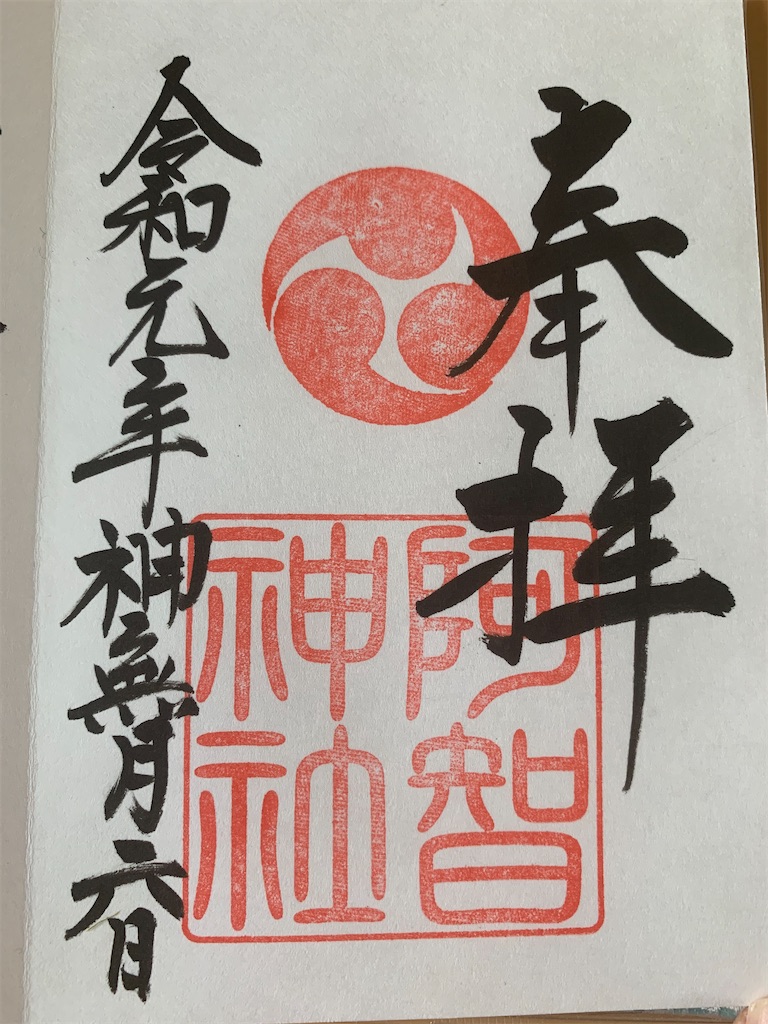 奉拝
阿智
神社
令和元年神無月六日